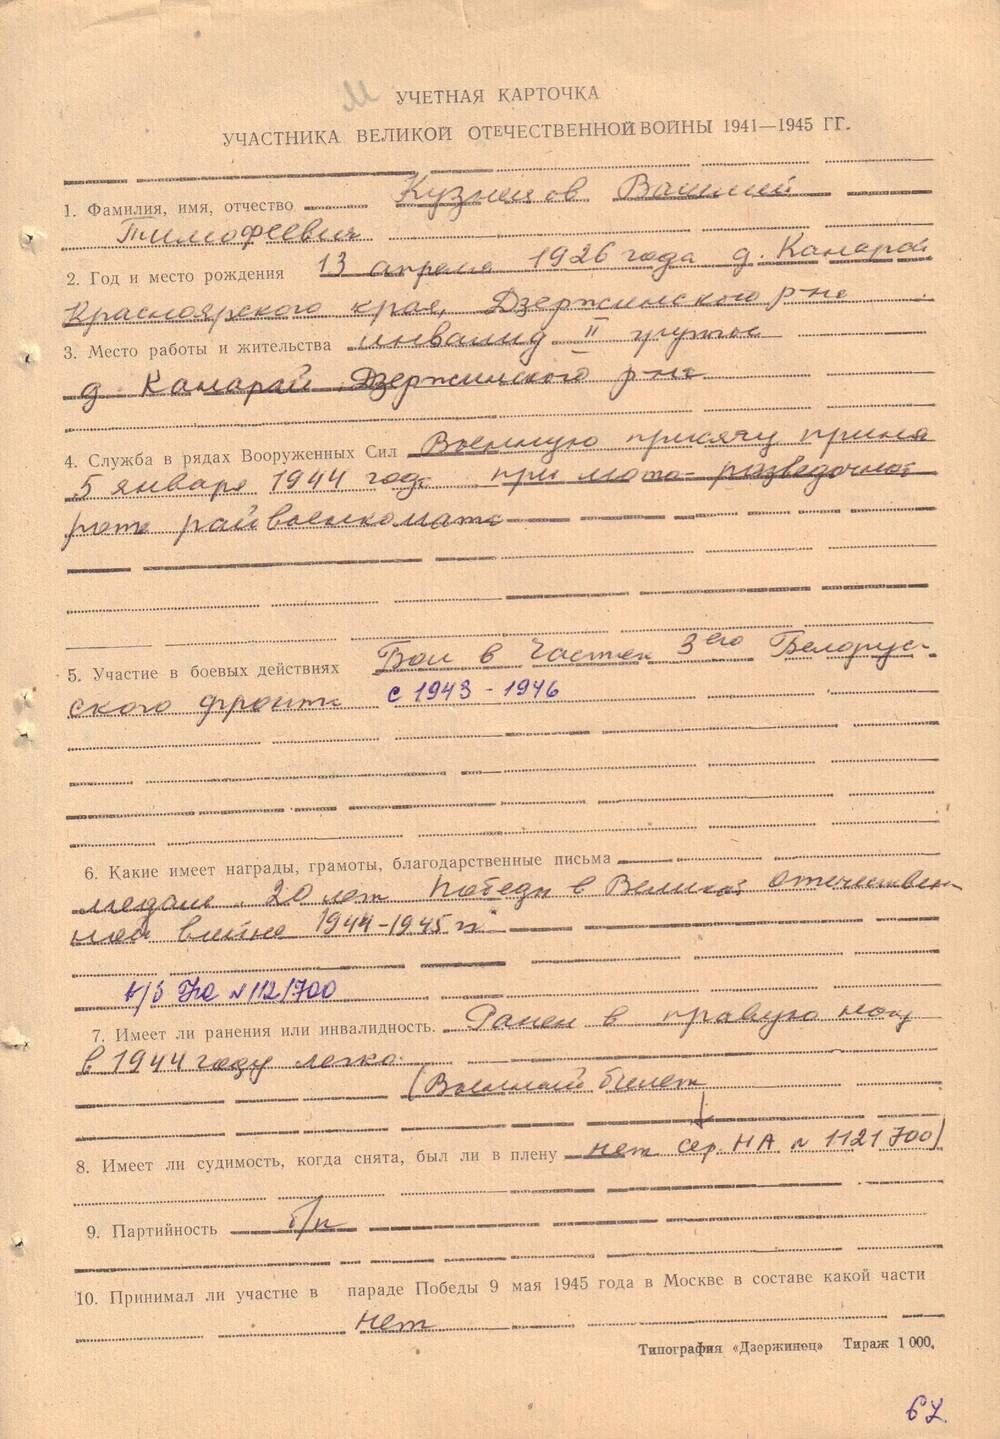 УЧЕТНАЯ КАРТОЧКА
УЧАСТНИКА ВЕЛИКОЙ ОТЕЧЕСТВЕННОЙ ВОЙНЫ 1941—1945 ГГ.
1. Фамилия, имя, отчество Кузнецов Василий
Тимофеевич
2. Год и место рождения 13 апреля 1926 года д. Канарай
Красноярского края, Дзержинского р-на
3. Место работы и жительства инвалид II группы
д. Канарай Дзержинского р-на
4. Служба в рядах Вооруженных Сил Военную присягу принял
5 января 1944 года при мото-разведочной
роте райвоенкомата
5. Участие в боевых действиях Бои в частях 3его Белорус-
ского фронта с 1943 - 1946
6. Какие имеет награды, грамоты, благодарственные письма
медаль „20 лет Победы в Великой отечествен-
ной войне 1944-1945 гг"
в/б НО №1121700
7. Имеет ли ранения или инвалидность. Ранен в правую ногу
в 1944 году легко.
(Военный билет
8. Имеет ли судимость, когда снята, был ли в плену нет сер. НА № 1121700)
9. Партийность б/п
10. Принимал ли участие в параде Победы 9 мая 1945 года в Москве в составе какой части
нет
Типография «Дзержинец» Тираж 1 000.
67.